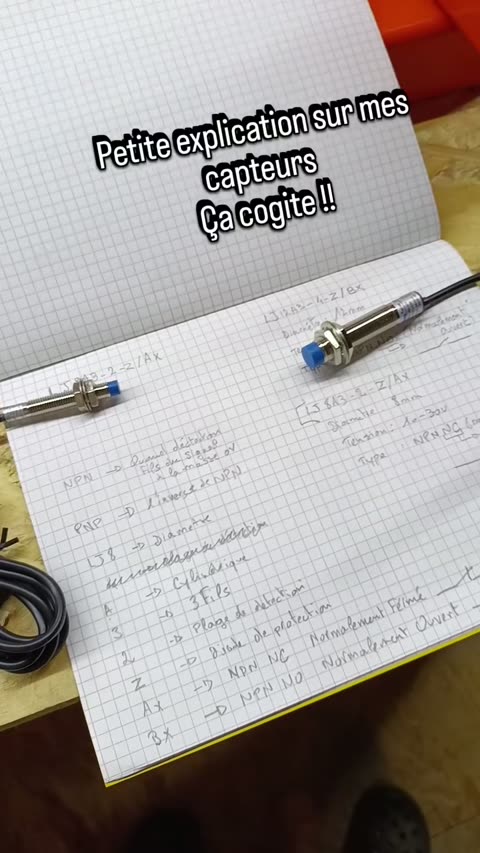 Petite explication sur mes
capteurs
Ça cogite !!
LJ12A3-4-Z/BX
Diamètre 12mm
Normalement
Ouvert
LJ8A3-2-Z/AX
LJ8A3-2-Z/AX
Diamètre 8mm
Tension: 10-30V
Type NPN NC
NPN → Quand détection
fils du signal
à la masse 0V
PNP → l'inverse de NPN
LJ8 → Diamètre
A → Cylindrique
3 → 3 Fils
2 → Plage de détection
Z → diode de protection
AX → NPN NC Normalement Fermé
BX → NPN NO Normalement Ouvert